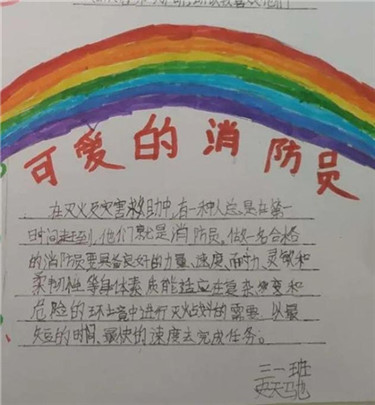 可爱的消防员
在灭火及灾害救助中,有一种人总是在第一
时间赶到,他们就是消防员。做一名合格
的消防员要具备良好的力量、速度、耐力、灵敏和
柔韧性等身体素质能适应在复杂多变和
危险的环境中进行灭火战斗的需要,以最
短的时间、最快的速度去完成任务。
三一班